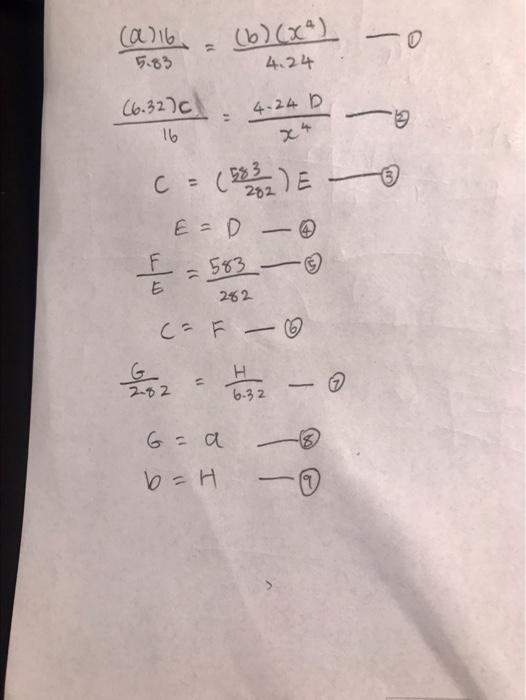 (a)16 / 5.83 = (b)(x⁴) / 4.24 — ①
(6.32)C / 16 = 4.24 D / x⁴ — ②
C = (583/282) E — ③
E = D — ④
F / E = 583 / 282 — ⑤
C = F — ⑥
G / 2.82 = H / 6.32 — ⑦
G = a — ⑧
b = H — ⑨